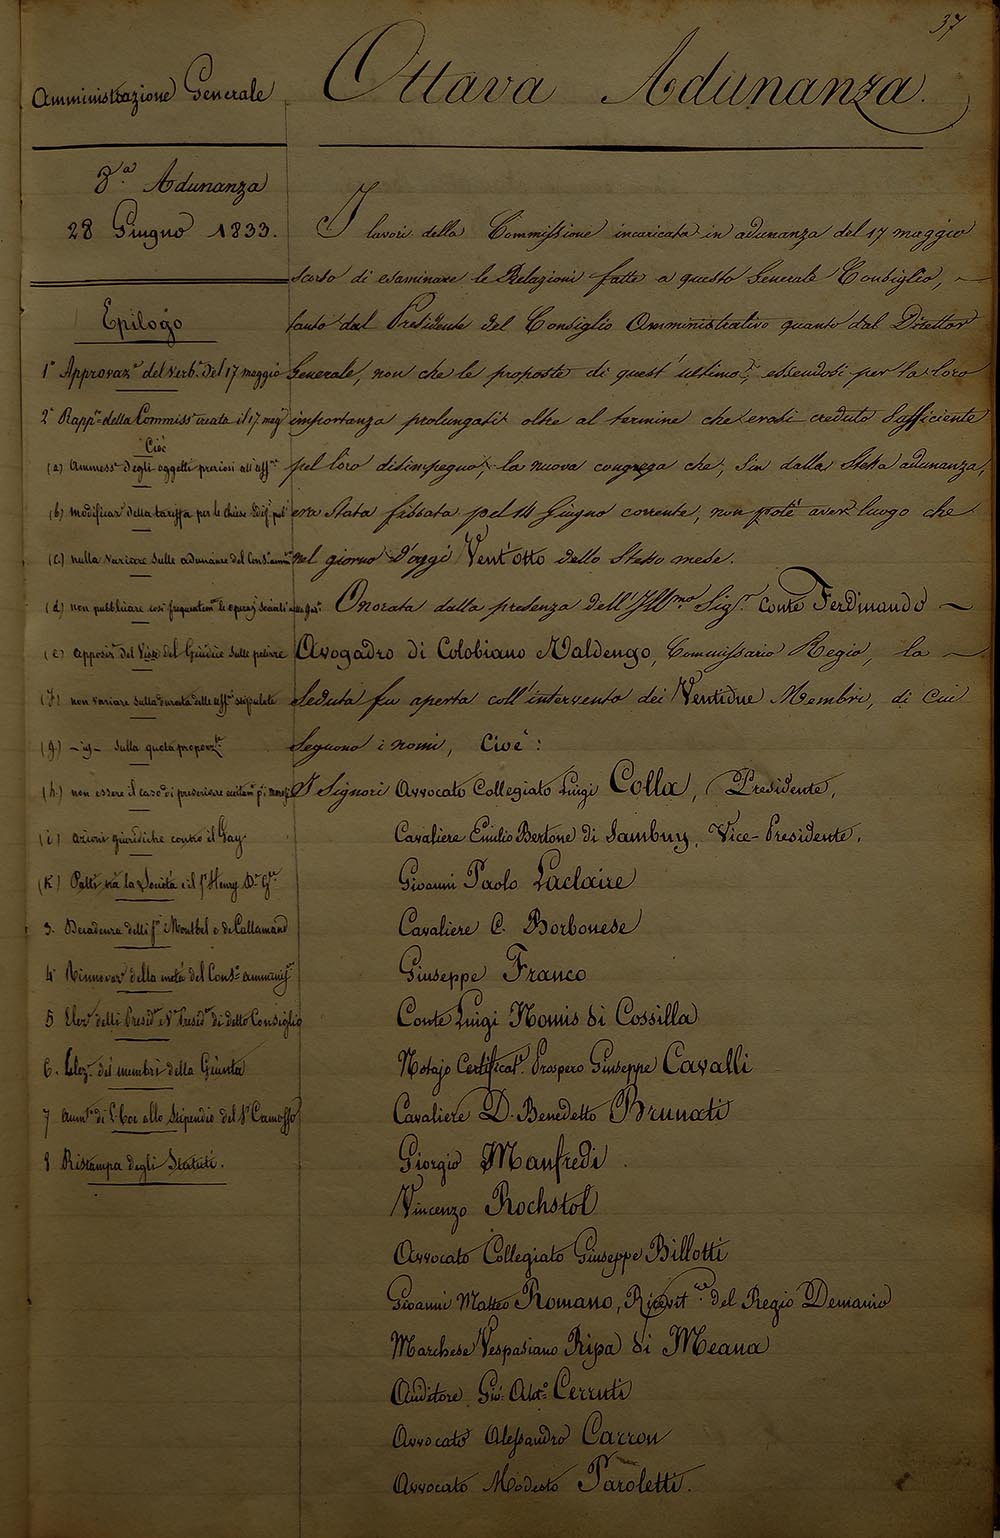 37
Amministrazione Generale
Ottava Adunanza.
8.a Adunanza
28 Giugno 1833.
Epilogo
1° Approvaz.e del verb.e del 17 maggio
2° Rapp.to della Commiss.e creata il 17 mag.o
Cioè
(a) Ammess.e degli oggetti preziosi all'ass.ne
(b) modificaz.e della tariffa per le chiese ed
(c) nulla variare sulle adunanze del Cons.o amm.vo
(d) non pubblicare così frequentem.te le operaz.i sociali
(e) apposiz.e del Visto del Giudice sulle perizie
(f) non variare sulla durata delle ass.ni stipulate
(g.) - id - sulla quota proporz.le
(h.) non essere il caso di prescrivere
(i) azioni giuridiche contro il Gay
(K) Patti trà la Società e il S.r Henry D.r G.le
3. Decadenza delli S.ri Montbel e de Callamand
4° Rinnovaz.e della metà del Cons.o amminis.vo
5 Elez.e delli Presid.te e V.e Presid.te di detto Consiglio
6. Elez.e dei membri della Giunta
7 Aum.to di allo stipendio del S.r Camosso
8 Ristampa degli Statuti.
I lavori della Commissione incaricata in adunanza del 17 maggio
scorso di esaminare le Relazioni fatte a questo Generale Consiglio,
tanto dal Presidente del Consiglio Amministrativo quanto dal Direttor
Generale, non che le proposte di quest'ultimo, essendosi per la loro
importanza prolungati oltre al termine che erasi creduto sufficiente
pel loro disimpegno, la nuova congrega che, sin dalla stessa adunanza,
era stata fissata pel 14 Giugno corrente, non potè aver luogo che
nel giorno d'oggi Vent'otto dello stesso mese.
Onorata dalla presenza dell'Ill.mo Sig.r Conte Ferdinando
Avogadro di Colobiano Valdengo, Commissario Regio, la
seduta fu aperta coll'intervento dei Ventidue Membri, di cui
seguono i nomi, Cioè:
I Signori Avvocato Collegiato Luigi Colla, Presidente,
Cavaliere Emilio Bertone di Sambuy, Vice-Presidente,
Giovanni Paolo Laclaire
Cavaliere C. Borbonese
Giuseppe Franco
Conte Luigi Nomis di Cossilla
Notajo Certificat.e Prospero Giuseppe Cavalli
Cavaliere D. Benedetto Brunati
Giorgio Manfredi
Vincenzo Rochstol
Avvocato Collegiato Giuseppe Billotti
Giovanni Matteo Romano, Ricevit.re del Regio Demanio
Marchese Vespasiano Ripa di Meana
Auditore Gio: Ant.o Cerruti
Avvocato Alessandro Carron
Avvocato Modesto Paroletti.